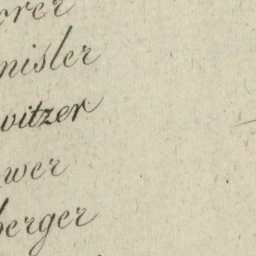 orer
nisler
witzer
wer
berger